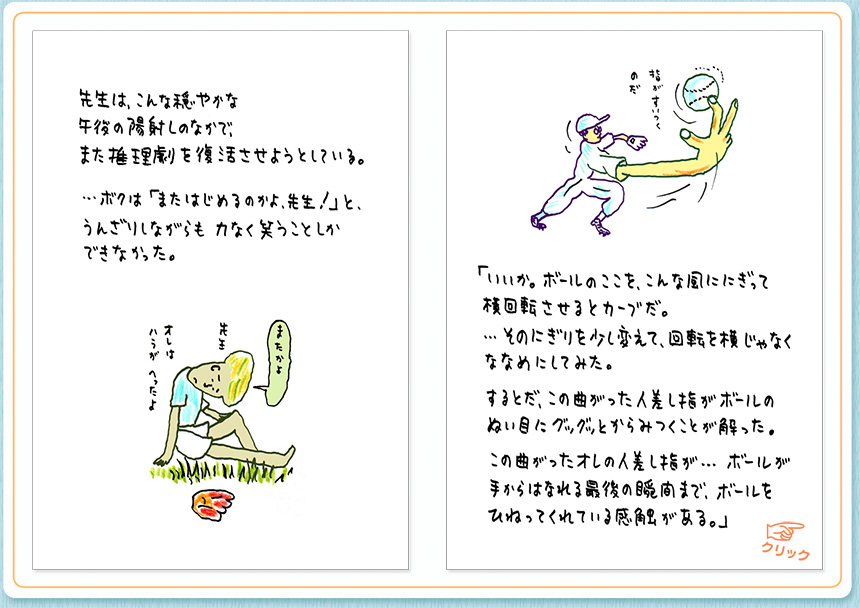 先生は、こんな穏やかな
午後の陽射しのなかで、
また推理劇を復活させようとしている。
…ボクは「またはじめるのかよ、先生！」と、
うんざりしながらも 力なく笑うことしか
できなかった。
またかよ
先生
オレは
ハラが へったよ
指がすいつく
のだ
「いいか。ボールのここを、こんな風ににぎって
横回転させるとカーブだ。
…そのにぎりを少し変えて、回転を横じゃなく
ななめにしてみた。
するとだ、この曲がった人差し指がボールの
ぬい目にグッグッとからみつくことが解った。
この曲がったオレの人差し指が… ボールが
手からはなれる最後の瞬間まで、ボールを
ひねってくれている感触がある。」
クリック